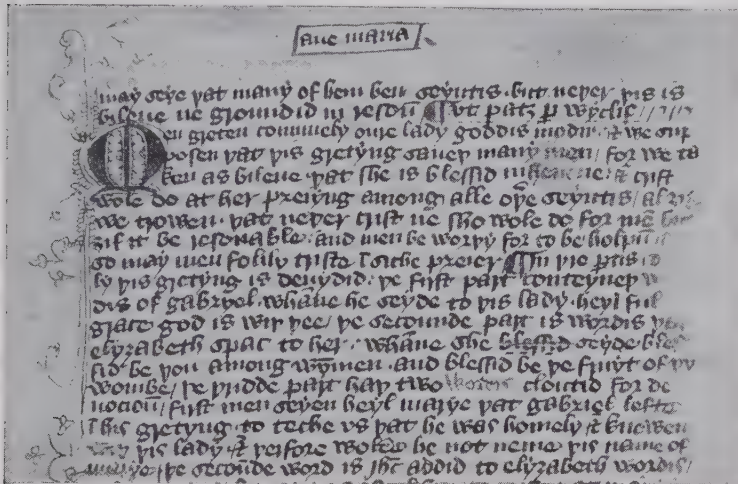 aue maria
may seye þat many of hem ben seyntis · but neþer þis is
bileue ne groundid in resoũ ¶ vt patȝ p wyclif
Men greten comunely oure lady goddis modir · ⁊ we sup
posen þat þis gretyng saueþ many men / for we ta
ken as bileue · þat she is blessid in heuene · ⁊ crist
wole do at her preiyng among alle oþe seyntis / al
we trowen · þat neþer crist ne she wole do for mẽ but
ȝif it be resonable · and men be worþy for to be holpun
so may men folily triste ĩ siche preier ¶ In þre ptis
ly þis gretyng is deuydid · þe first part conteyneþ
dis of gabryel · whãne he seyde to þis lady · heyl ful
grace god is wiþ þee / þe secounde part is wordis
elyzabeth spac to her · whãne she blessid seyde
sid be þou among wȳmen · and blessid be þe fruyt of þy
wombe / þe þridde part haþ two wordis cloutid for de
uocioũ / first men seyen heyl marye þat gabriel lefte
this gretyng · to teche vs þat he was homely ⁊ knowen
wiþ þis lady · ⁊ þerfore wolde he not neme þis name of
marye / þe secoũde word is ihc addid to elyzabeth wordis /